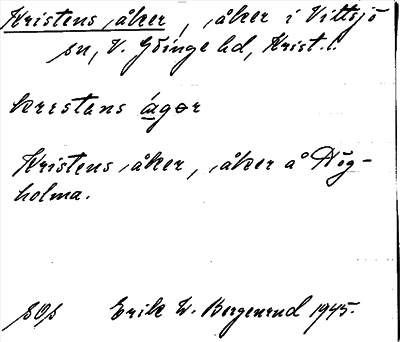 Kristens åker, åker i Vittsjö
sn, V. Göinge hd, Krist. l.
krestans ágər
Kristens åker, åker å Hög-
holma.
SOS Erik W. Bergenrud 1945.